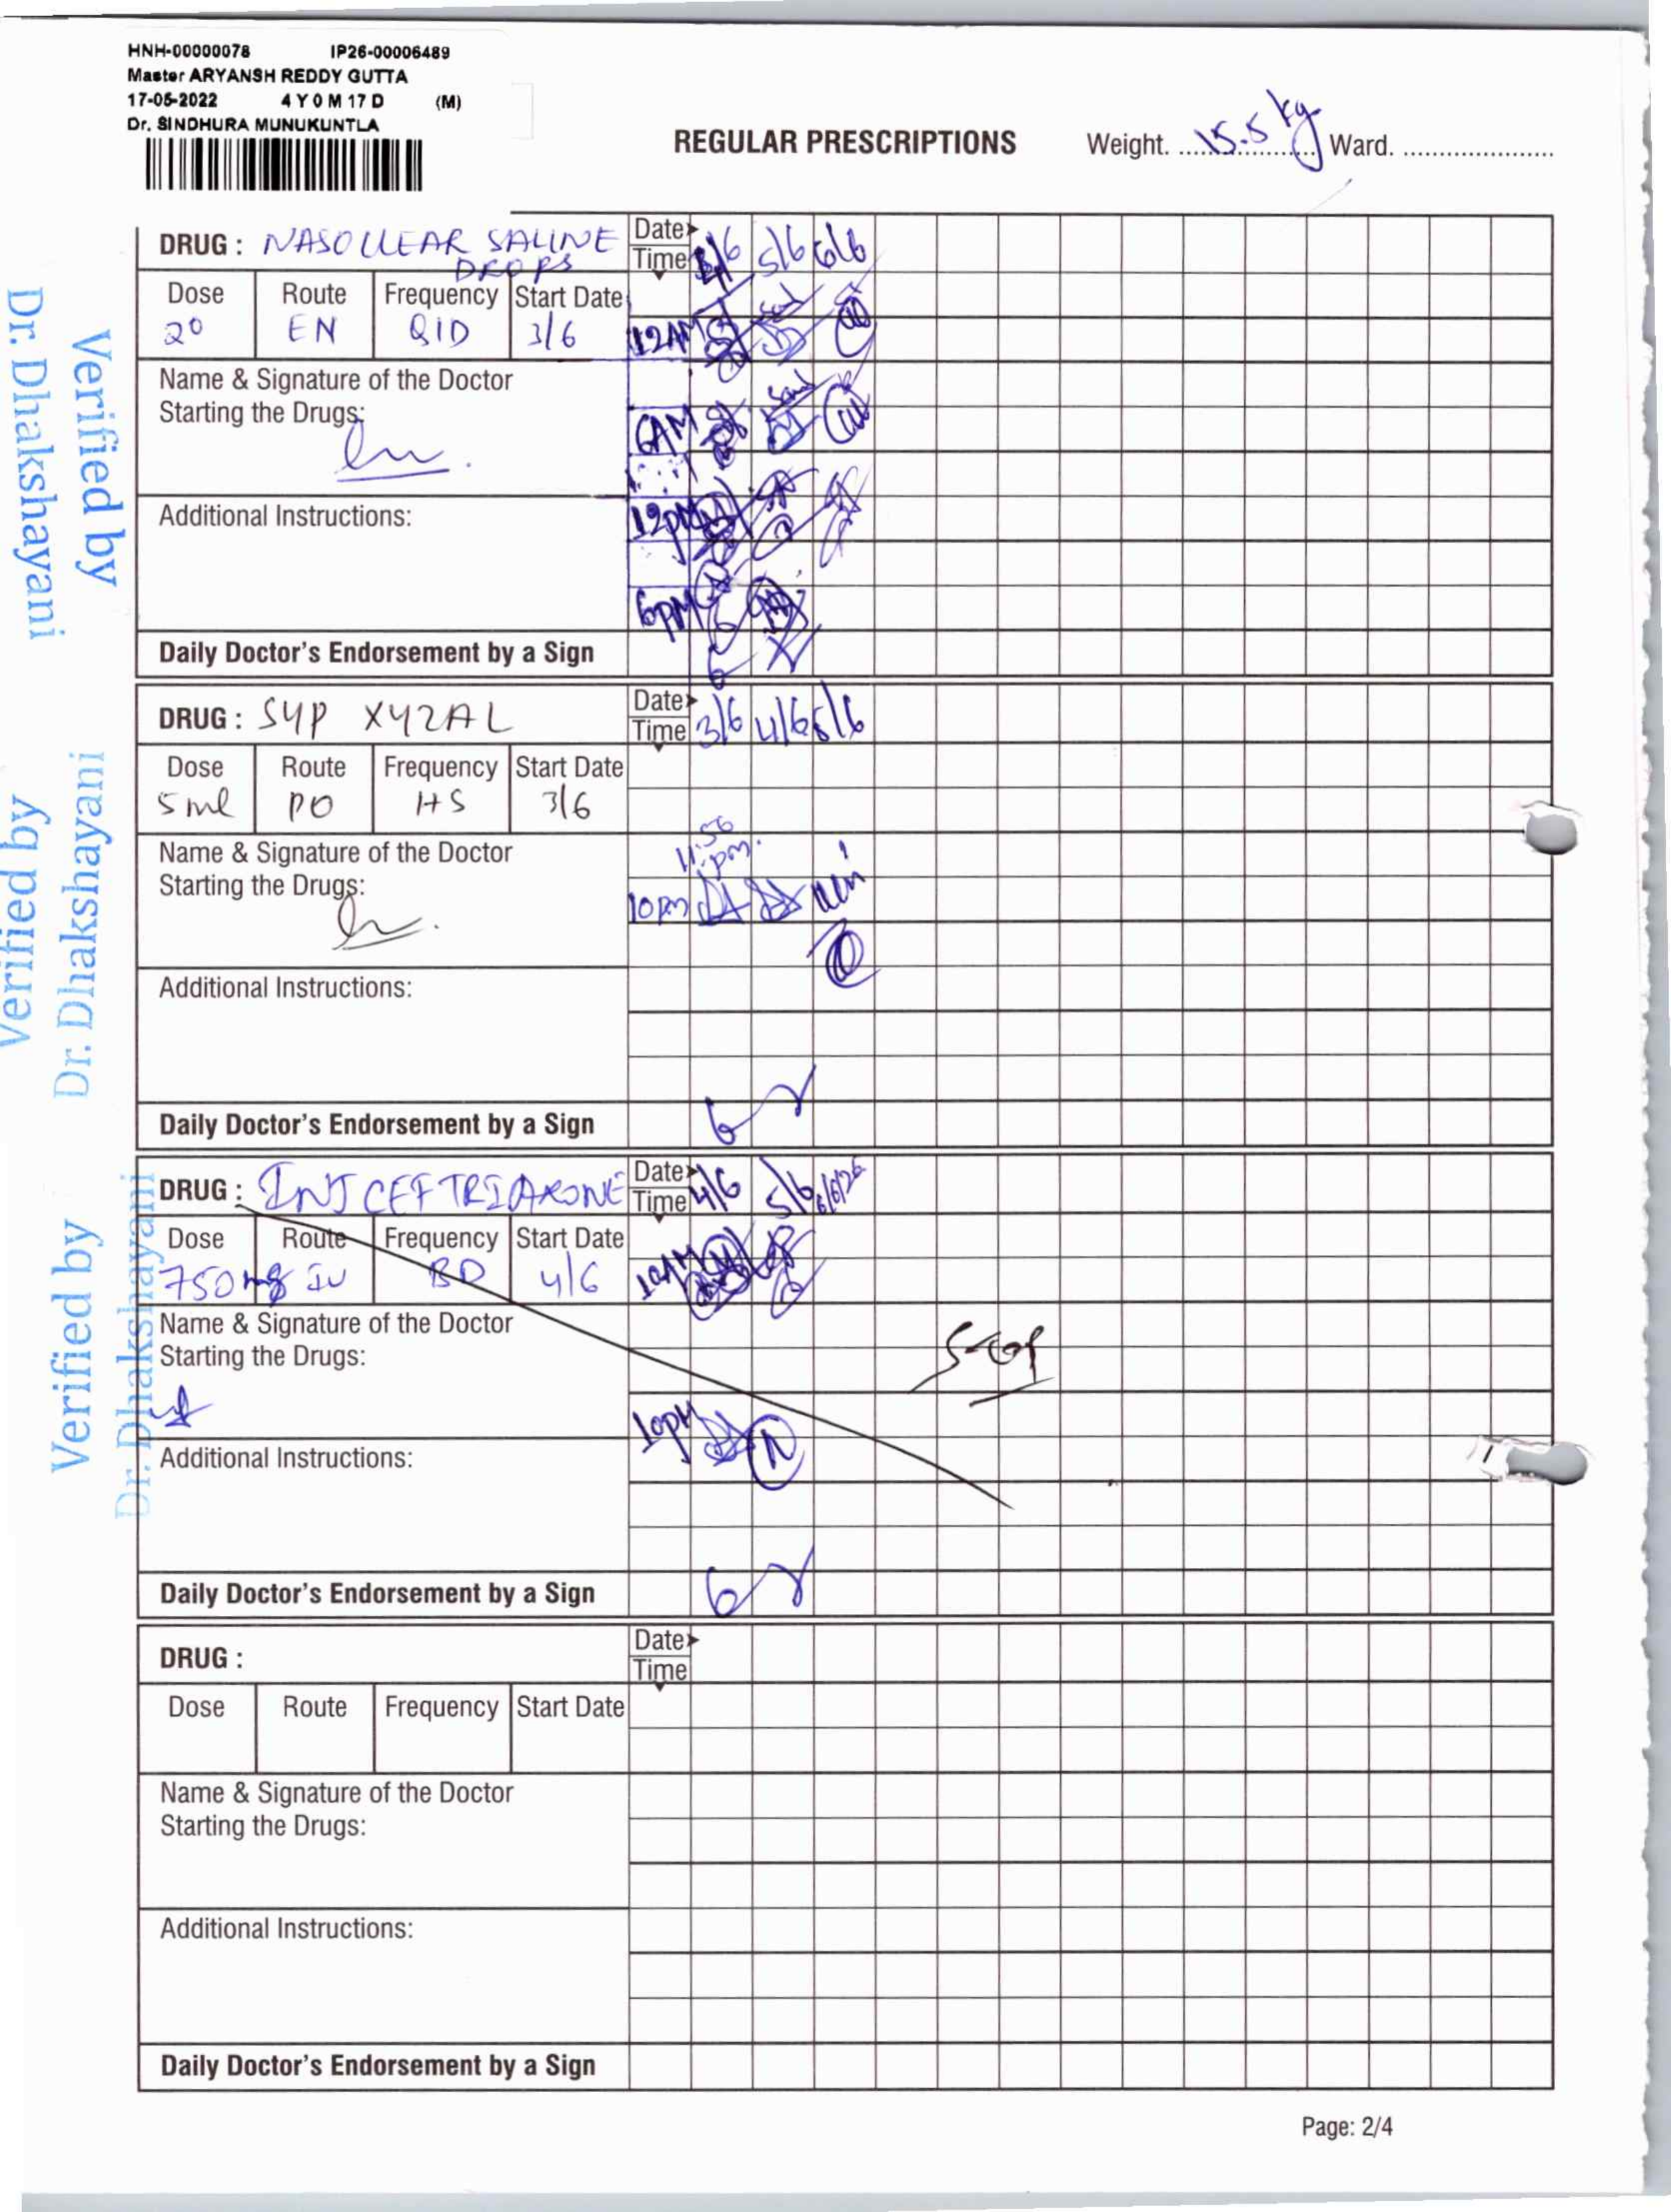 HNH-00000078 IP26-00006489
Master ARYANSH REDDY GUTTA
17-05-2022 4 Y 0 M 17 D (M)
Dr. SINDHURA MUNUKUNTLA
REGULAR PRESCRIPTIONS Weight. 15.5 kg Ward.
Verified by
Dr. Dhakshayani
DRUG : NASOCLEAR SALINE DROPS
Date
Time
5/6 6/6
Dose Route Frequency Start Date
2° EN QID 3/6
12AM
Name & Signature of the Doctor
Starting the Drugs:
6AM
Additional Instructions:
12PM
6PM
Daily Doctor's Endorsement by a Sign
Verified by
Dr. Dhakshayani
DRUG : SYP XYZAL
Date
Time
3/6 4/6 5/6
Dose Route Frequency Start Date
5 ml PO HS 3/6
Name & Signature of the Doctor
Starting the Drugs:
11:56 pm.
10 pm
Additional Instructions:
Daily Doctor's Endorsement by a Sign
Verified by
Dr. Dhakshayani
DRUG : INJ CEFTRIAXONE
Date
Time
4/6 5/6 6/6/26
Dose Route Frequency Start Date
750 mg IV BD 4/6
10AM
Name & Signature of the Doctor
Starting the Drugs:
Stop
10PM
Additional Instructions:
Daily Doctor's Endorsement by a Sign
DRUG :
Date
Time
Dose Route Frequency Start Date
Name & Signature of the Doctor
Starting the Drugs:
Additional Instructions:
Daily Doctor's Endorsement by a Sign
Page: 2/4